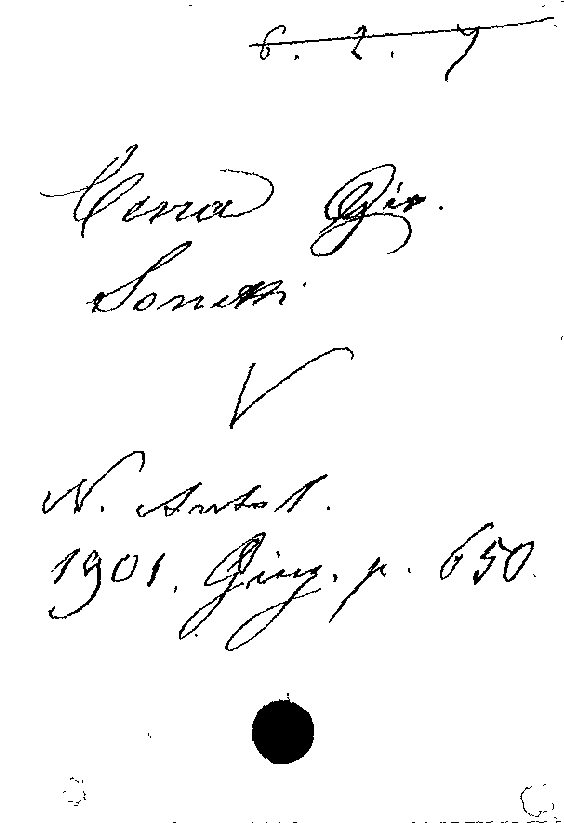 6. 2. 7
Cena Gio.
Sonetti
V
N. Antol.
1901. Giug. p. 650.